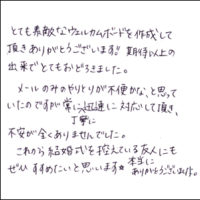 とても素敵なウェルカムボードを作成して
頂きありがとうございます。期待以上の
出来でとてもおどろきました。
メールのみのやりとりが不便かな、と思って
いたのですが常に迅速に対応して頂き、
丁寧に
不安が全くありませんでした。
これから結婚式を控えている友人にも
ぜひすすめたいと思います☆本当に
ありがとうございました。